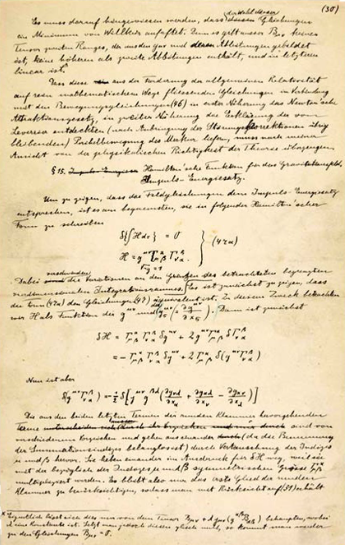 (30)
Es muss darauf hingewiesen werden, dass diesen Gleichungen
ein Minimum von Willkür anhaftet. Denn es gibt ausser Bμν keinen
Tensor zweiten Ranges, der aus den gμν und deren Ableitungen gebildet
ist, keine höheren als zweite Ableitungen enthält, und in letzteren
linear ist.*
Dass diese aus der Forderung der allgemeinen Relativität
auf rein mathematischem Wege fliessenden Gleichungen in Verbindung
mit den Bewegungsgleichungen (46) in erster Näherung das Newton'sche
Attraktionsgesetz, in zweiter Näherung die Erklärung der von
Leverrier entdeckten (nach Anbringung der Störungskorrektionen übrig
bleibenden) Perihelbewegung des Merkur liefern, muss nach meiner
Ansicht von der physikalischen Richtigkeit der Theorie überzeugen.
§ 15. Hamilton'sche Funktion für das Gravitationsfeld,
Impuls-Energiesatz.
Um zu zeigen, dass die Feldgleichungen dem Impuls-Energiesatz
entsprechen, ist es am bequemsten, sie in folgender Hamilton'scher
Form zu schreiben
δ{∫H dτ} = 0
H = g^μν Γ^α_μβ Γ^β_να } (47a)
√-g = 1
verschwinden
Dabei die Variationen an den Grenzen des betrachteten begrenzten
vierdimensionalen Integrationsraumes. Es ist zunächst zu zeigen, dass
die Form (47a) den Gleichungen (47) äquivalent ist. Zu diesem Zweck betrachten
wir H als Funktion der g^μν und g^μν_σ (= ∂g^μν/∂x_σ). Dann ist zunächst
δH = Γ^α_μβ Γ^β_να δg^μν + 2 g^μν Γ^α_μβ δΓ^β_να
= − Γ^α_μβ Γ^β_να δg^μν + 2 Γ^α_μβ δ(g^μν Γ^β_να)
Nun ist aber
δ(g^μν Γ^β_να) = −½ δ[g^μν g^βλ (∂g_νλ/∂x_α + ∂g_αλ/∂x_ν − ∂g_αν/∂x_λ)]
Die aus den beiden letzten Termen der runden Klammer hervorgehenden
Terme sind von
verschiedenem Vorzeichen und gehen auseinander (da die Benennung
der Summationsindizes belanglos ist) durch Vertauschung der Indizes
μ und β hervor. Sie heben einander im Ausdruck für δH weg, weil sie
mit der bezüglich der Indizes μ und β symmetrischen Grösse Γ^α_μβ
multipliziert werden. Es bleibt also nur das erste Glied der runden
Klammer zu berücksichtigen, sodass man mit Rücksicht auf (31) erhält